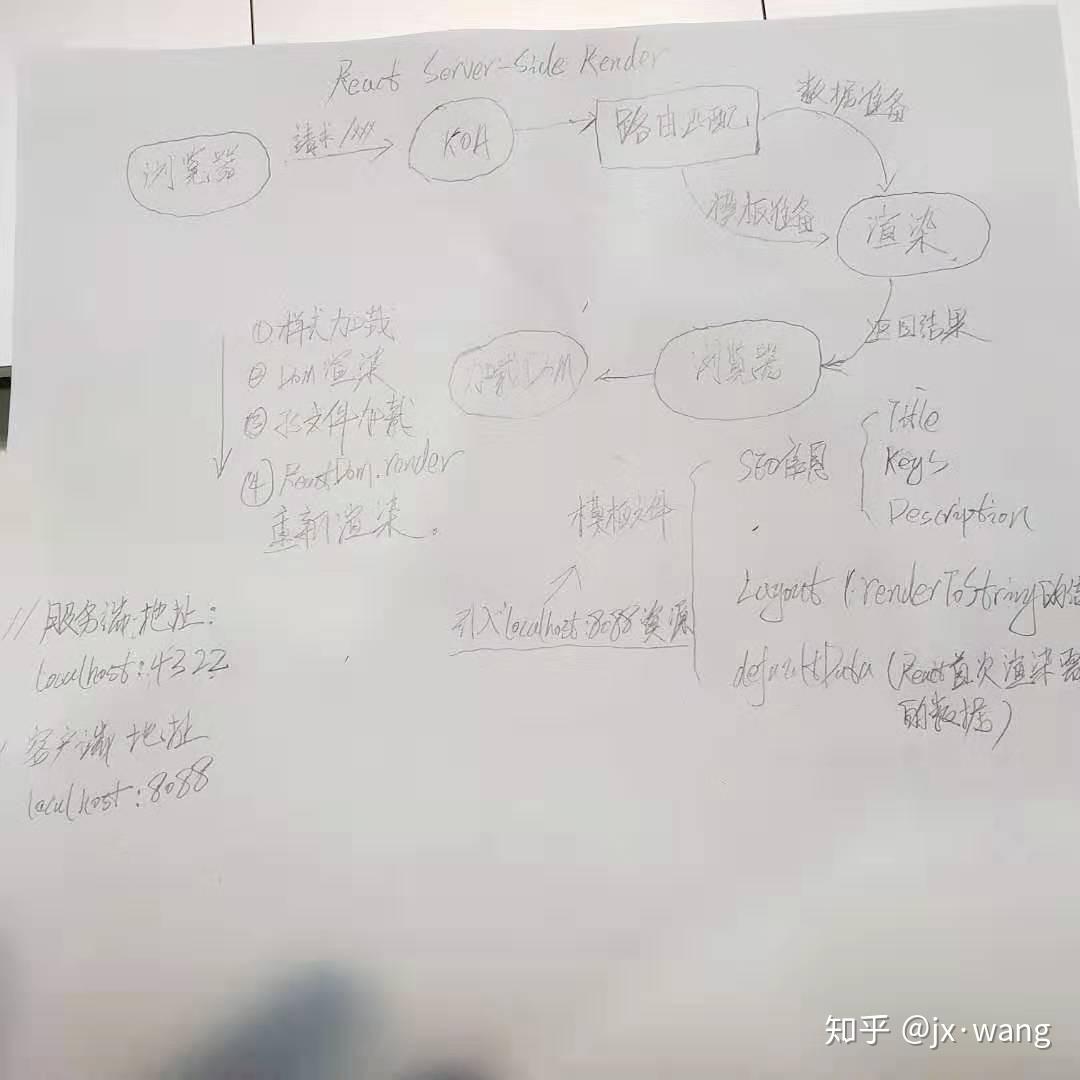 React Server-Side Render
浏览器
请求/xxx
KOA
路由匹配
数据准备
模板准备
渲染
返回结果
浏览器
加载Dom
① 样式加载
② Dom渲染
③ js文件加载
④ ReactDom.render
重新渲染。
模板文件
引入localhost:8088资源
SEO信息
Title
Keys
Description
Layout (renderToString的
defaultData (React首次渲染需
的数据)
// 服务端地址:
localhost:4322
/ 客户端地址
localhost:8088
知乎 @jx·wang